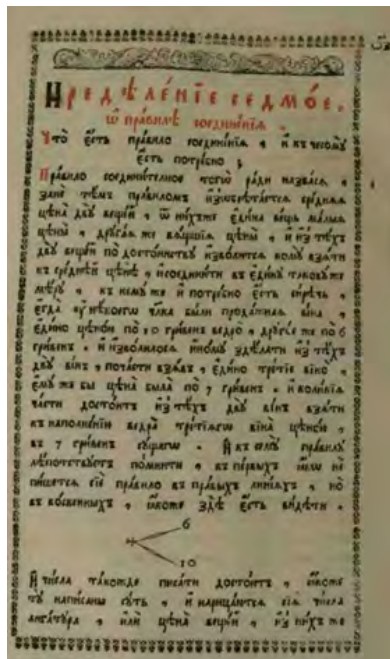 Предѣле́нїе седмо́е.
ѡ҆ пра́вилѣ соедине́нїѧ.
Что̀ є҆́сть пра́вило соедине́нїѧ, и҆ къ чесомꙋ̀
є҆́сть потре́бно;
Пра́вило соедини́телное тогѡ̀ ра́ди назва́сѧ,
занѐ тѣ́мъ пра́виломъ и҆з̾ѡбрѣта́етсѧ сре́днѧѧ
цѣна̀ двꙋ̀ веще́й, ѿ ни́хъже є҆ди́на ве́щь ма́лыѧ
цѣны̀, дрꙋга́ѧ же вѧ́щшїѧ цѣны̀, и҆ и҆з̾ тѣ́хъ
двꙋ̀ веще́й по досто́инствꙋ и҆зво́литсѧ комꙋ̀ взѧ́ти
къ сре́дней цѣнѣ̀, и҆ соедини́ти въ є҆ди́нꙋ такову́ же
мѣ́рꙋ, къ немꙋ́ же и҆ потре́бно є҆́сть си́рѣчь,
є҆гда̀ ᲂу҆ нѣ́коегѡ чл҃ка бы́ли прода́жнаѧ вїна̀,
є҆ди́но цѣно́ю по 10 гри́венъ ведро̀, дрꙋго́е же по 6
гри́венъ. и҆ и҆зво́лилосѧ и҆но́мꙋ здѣ́лати и҆з̾ тѣ́хъ
двꙋ̀ ви́нъ, по ча́сти взѧ́въ, є҆ди́но тре́тїе вїно̀,
є҆мꙋ́ же бы цѣна̀ была̀ по 7 гри́венъ. и҆ коли́кїѧ
ча́сти досто́итъ и҆з̾ тѣ́хъ двꙋ̀ ви́нъ взѧ́ти
къ наполне́нїю ведра̀ тре́тїѧгѡ вїна̀ цѣно́ю,
въ 7 гри́венъ сꙋ́щагѡ. И҆ къ семꙋ̀ пра́вилꙋ
лѣ́потствꙋетъ по́мнити, въ пе́рвыхъ ꙗ҆́кѡ не
пи́шетсѧ сїѐ пра́вило въ пра́выхъ лине́ѧхъ, но
въ ко́свенныхъ, ꙗ҆́коже здѣ̀ є҆́сть ви́дѣти.
6
10
И҆ чи́сла та́кожде писа́ти досто́итъ, ꙗ҆́коже
тꙋ̀ напи́саны сꙋ́ть, и҆ нарица́ютсѧ сїѧ̀ чи́сла
лигатꙋ́ра, и҆лѝ цѣна̀ веще́й, и҆з̾ ни́хъ же